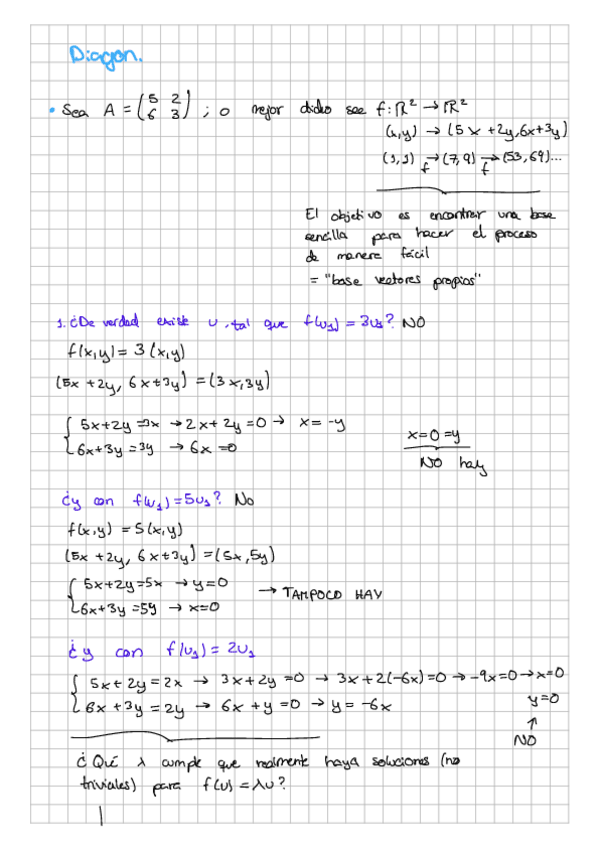 Diagon.
• Sea A = (5 2 / 6 3) ; o mejor dicho sea f: ℝ² → ℝ²
(x,y) → (5x + 2y, 6x+3y)
(1,1) →f (7,9) →f (53,69)...
El objetivo es encontrar una base
sencilla para hacer el proceso
de manera fácil
= "base vectores propios"
1. ¿De verdad existe u, tal que f(u₁) = 3u₁? NO
f(x,y) = 3(x,y)
(5x + 2y, 6x+3y) = (3x,3y)
5x+2y=3x → 2x + 2y = 0 → x = -y
6x+3y=3y → 6x = 0
x=0=y
NO hay
¿y con f(u₁)=5u₁? No
f(x,y) = 5(x,y)
(5x + 2y, 6x+3y) = (5x,5y)
5x+2y=5x → y=0
6x+3y=5y → x=0
→ TAMPOCO HAY
¿y con f(u₁) = 2u₁
5x + 2y = 2x → 3x + 2y = 0 → 3x + 2(-6x) = 0 → -9x=0 → x=0
6x + 3y = 2y → 6x + y = 0 → y = -6x
y=0
↑
NO
¿Qué λ cumple que realmente haya soluciones (no
triviales) para f(u) = λu?